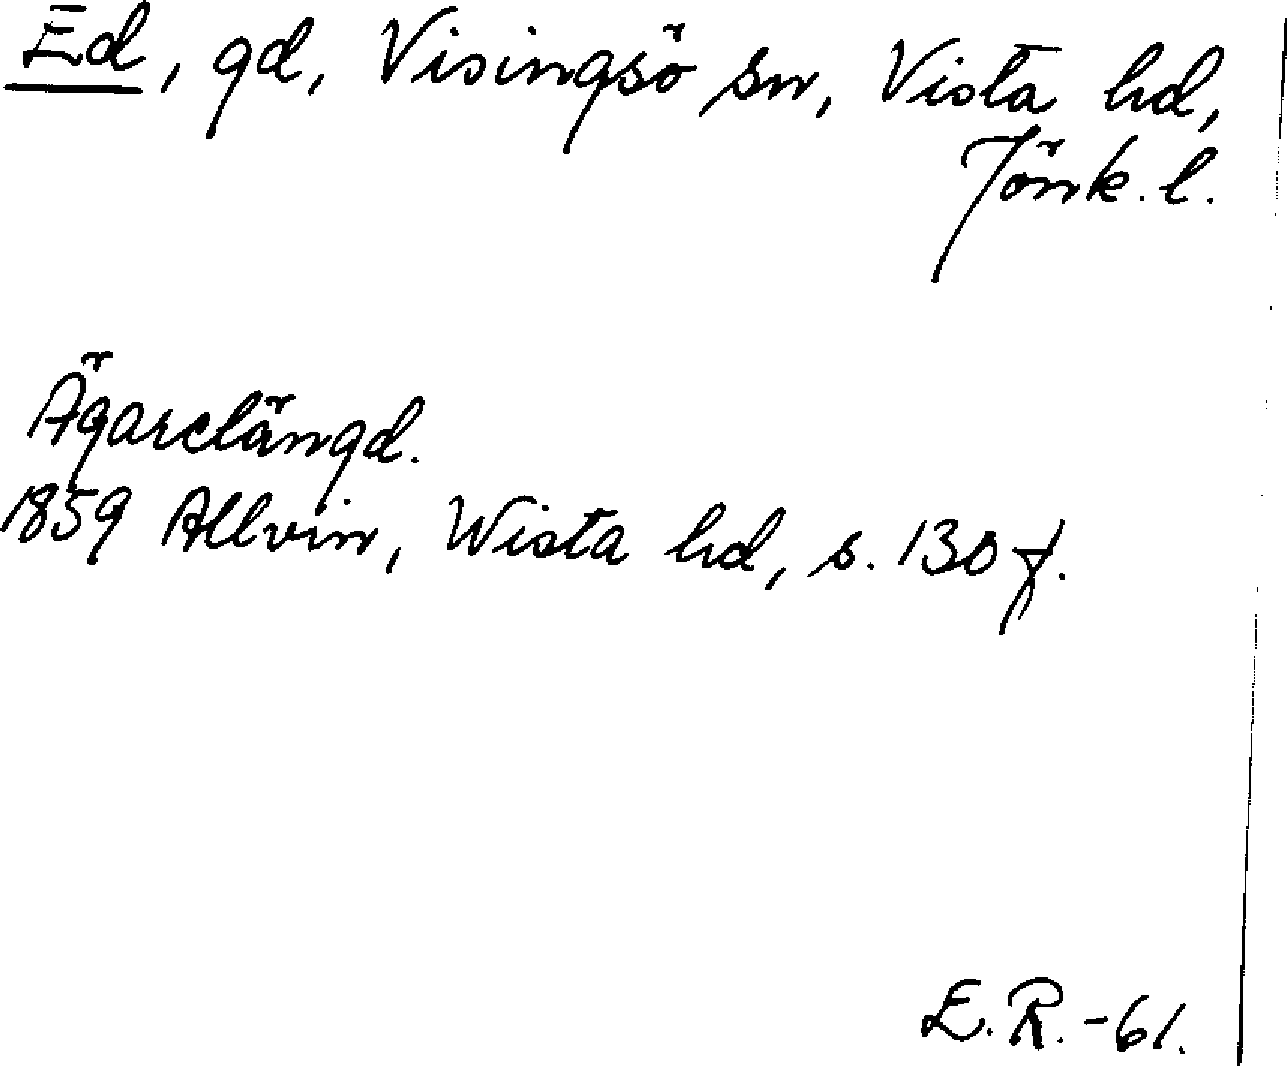 Ed, gd, Visingsö sn, Vista hd,
Jönk. l.
Ägarelängd.
1859 Allvin, Wista hd, s. 130 f.
E. R. -61.